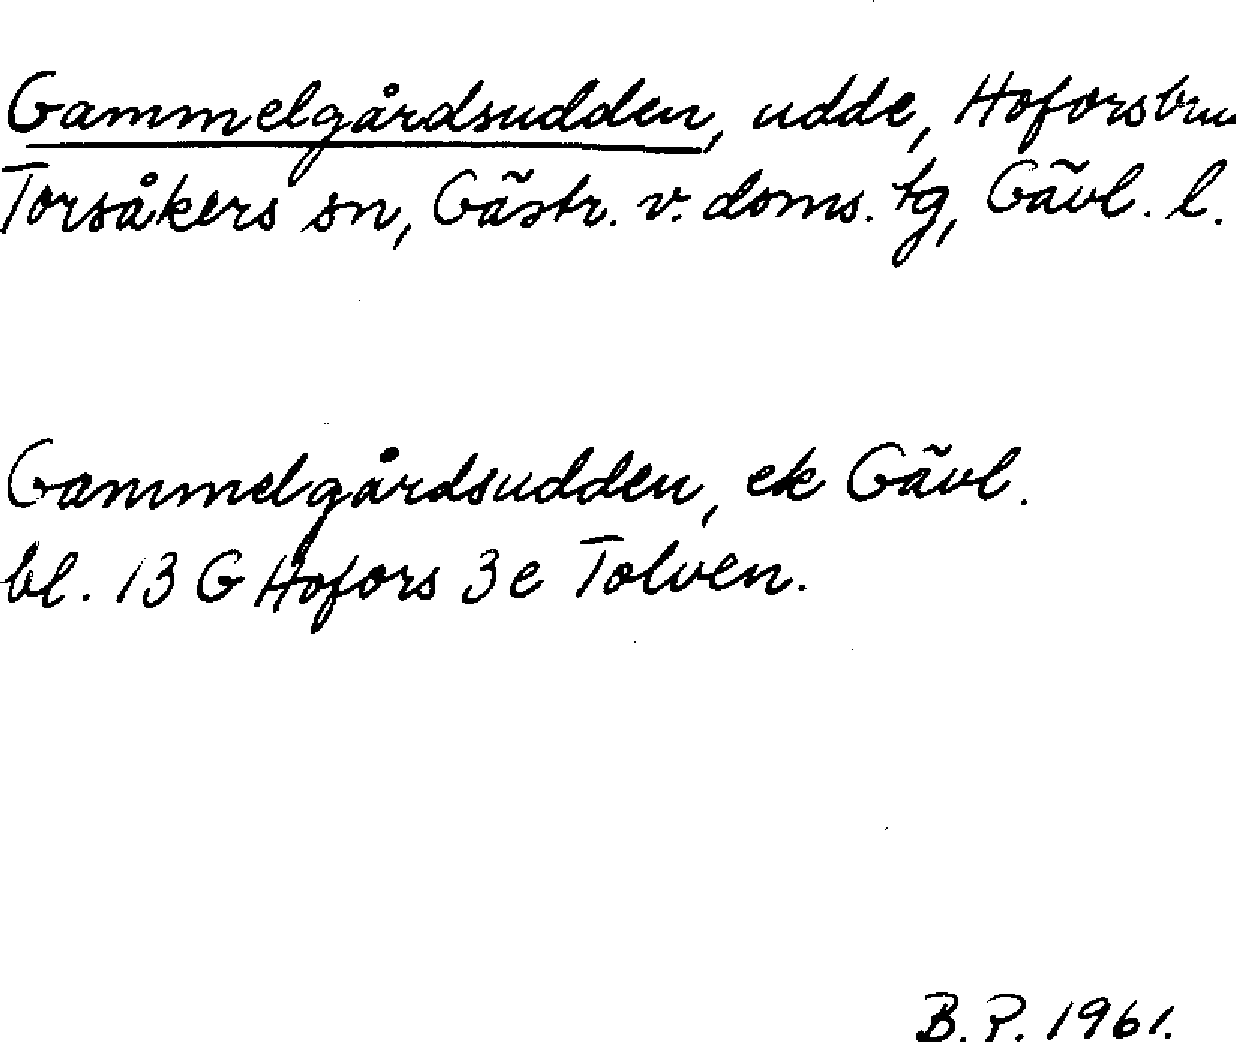 Gammelgårdsudden, udde, Hoforsbru
Torsåkers sn, Gästr. v. doms. tg, Gävl. l.
Gammelgårdsudden, ek Gävl.
bl. 13 G Hofors 3e Tolven.
B. P. 1961.